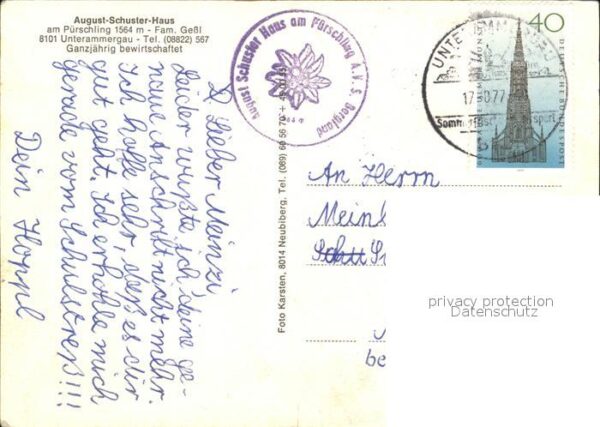 August-Schuster-Haus
am Pürschling 1564 m - Fam. Geßl
8101 Unterammergau - Tel. (08822) 567
Ganzjährig bewirtschaftet
August Schuster Haus am Pürschling A.V.S. Bergland
Lieber Meinzi,
Leider wußte ich deine ge-
naue Anschrift nicht mehr.
Ich hoffe sehr, daß es dir
gut geht. Ich erhole mich
gerade vom Schulstreß!!!
Dein Hoppl
Foto Karsten, 8014 Neubiberg, Tel. (089) 60 56 79 +
An Herrn
Meinl
be
UNTERAMM
17. 0.77
40
DEUTSCHE BUNDESPOST
privacy protection
Datenschutz